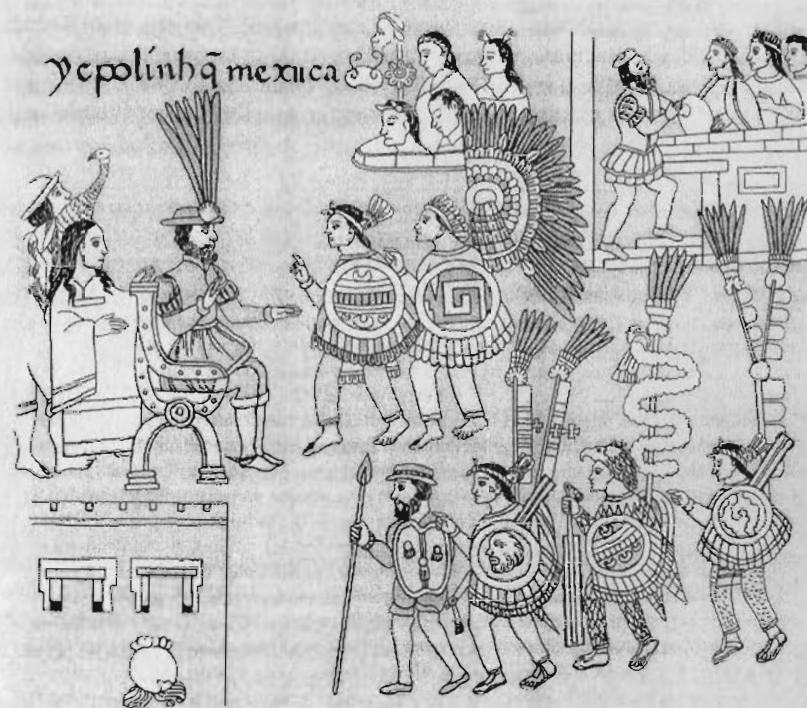 ycpolinhq̃ mexica